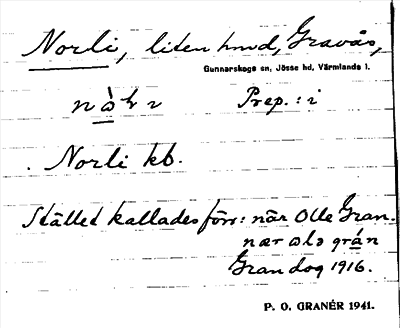 Norli, liten hmd, Gravås,
Gunnarskogs sn, Jösse hd, Värmlands l.
Prep.: i
Norli kb.
Stället kallades förr: när Olle Gran.
nær ola grán
Gran dog 1916.
P. O. GRANÉR 1941.